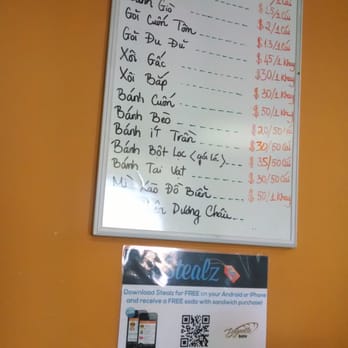 Giò $1.5/1 Cái
Gỏi Cuốn Tôm $2/1 Cái
Gỏi Đu Đủ $13/1 Cái
Xôi Gấc $45/1 Khay
Xôi Bắp $30/1 Khay
Bánh Cuốn $30/1 Khay
Bánh Bèo $50/1 Khay
Bánh iT Trần $20/50 Cái
Bánh Bột Lọc <gá lá> $30/50 Cái
Bánh Tai Vạt $35/50 Cái
Mì Xào Đồ Biển $30/50 Cái
Dương Châu $50/1 Khay
Stealz
Download Stealz for FREE on your Android or iPhone
and receive a FREE soda with sandwich purchase!